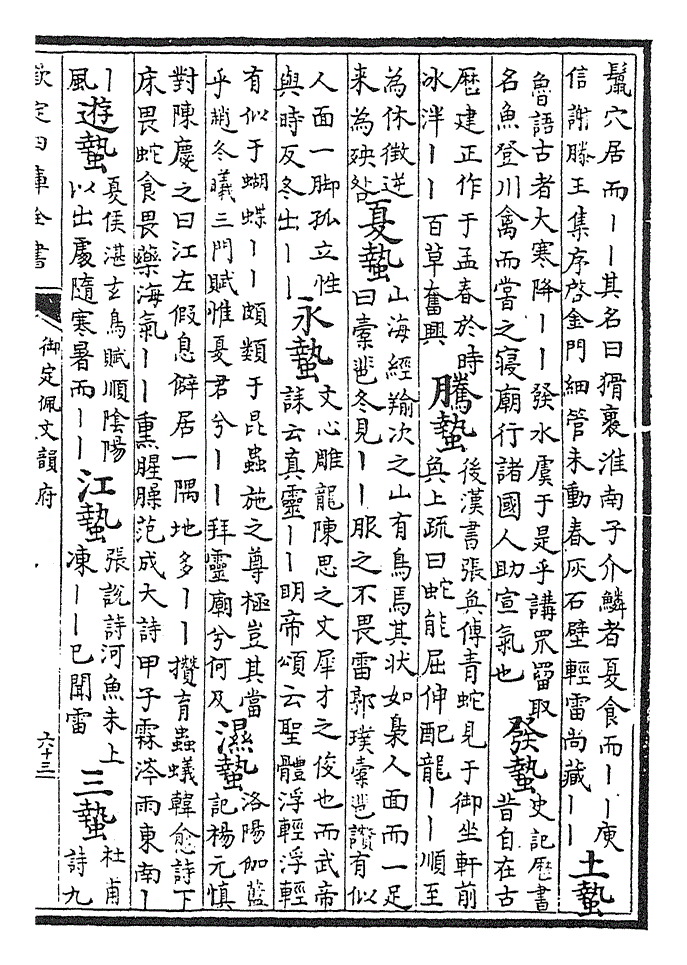 鬣穴居而丨丨其名曰猾褢淮南子介鱗者夏食而丨丨庾
信謝滕王集序啓金門細管未動春灰石壁輕雷尚藏丨丨
土蟄
魯語古者大寒降丨丨發水虞于是乎講罛罶取
名魚登川禽而嘗之寢廟行諸國人助宣氣也
發蟄
史記厯書
昔自在古
厯建正作于孟春於時
冰泮丨丨百草奮興
騰蟄
後漢書張奐傳青蛇見于御坐軒前
奐上疏曰蛇能屈伸配龍丨丨順至
為休徵逆
来為殃咎
夏蟄
山海經羭次之山有鳥焉其状如梟人面而一足
曰橐𩇯冬見丨丨服之不畏雷郭璞橐𩇯讚有似
人面一脚孤立性
與時反冬出丨丨
永蟄
文心雕龍陳思之文犀才之俊也而武帝
誄云真靈丨丨明帝頌云聖體浮輕浮輕
有似于蝴蝶丨丨頗類于昆蟲施之尊極豈其當
乎趙冬曦三門賦惟夏君兮丨丨拜靈廟兮何及
濕蟄
洛陽伽藍
記楊元慎
對陳慶之曰江左假息僻居一隅地多丨丨攢育蟲蟻韓愈詩下
床畏蛇食畏藥海氣丨丨熏腥臊范成大詩甲子霖涔雨東南丨
丨
風
遊蟄
夏侯湛玄鳥賦順陰陽
以出處隨寒暑而丨丨
江蟄
張說詩河魚未上
凍丨丨已聞雷
三蟄
杜甫
詩九
欽定四庫全書
御定佩文韻府
六十三